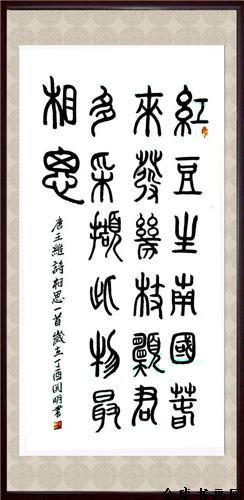 紅豆生南國春
來發幾枝願君
多采擷此物最
相思
唐王維詩相思一首歲在丁酉明書